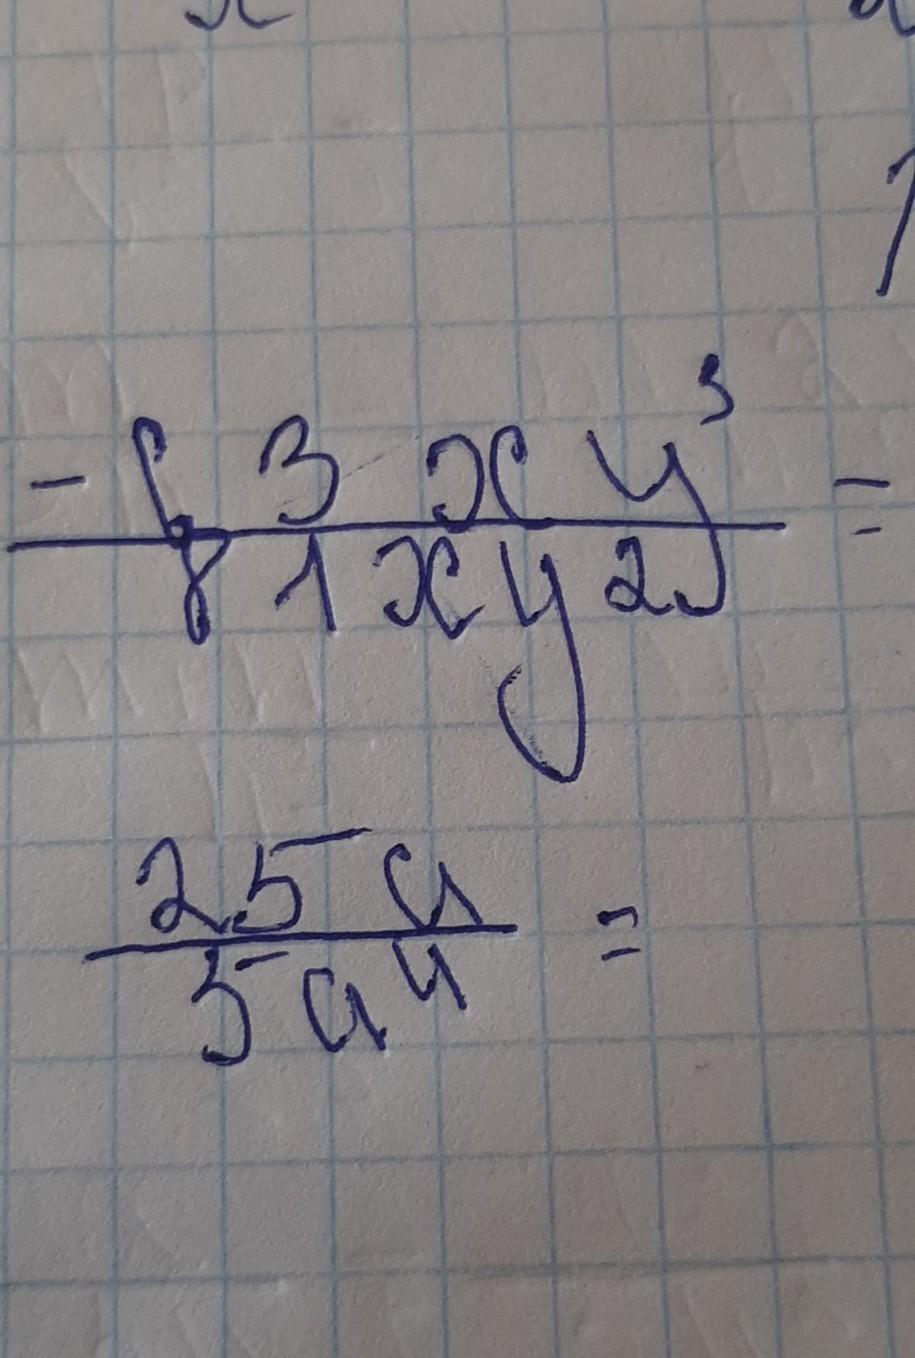 -63xy³ =
81xy2
25a =
5a⁴